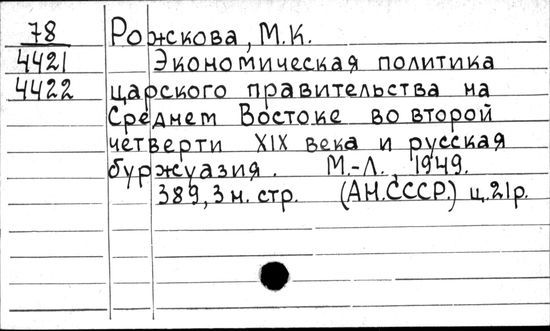 78 Рожскова, М.К.
4421 Экономическая политика
4422 царского правительства на
Среднем Востоке во второй
четверти XIX века и русская
буржуазия. М.-Л., 1949.
389, 3 н. стр. (АН.СССР.) ц.21р.